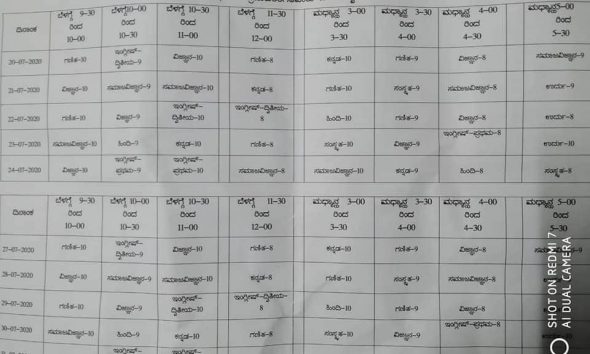 ದಿನಾಂಕ ಬೆಳಗ್ಗೆ 9-30 ರಿಂದ 10-00 ಬೆಳಗ್ಗೆ 10-00 ರಿಂದ 10-30 ಬೆಳಗ್ಗೆ 10-30 ರಿಂದ 11-00 ಬೆಳಗ್ಗೆ 11-30 ರಿಂದ 12-00 ಮಧ್ಯಾಹ್ನ 3-00 ರಿಂದ 3-30 ಮಧ್ಯಾಹ್ನ 3-30 ರಿಂದ 4-00 ಮಧ್ಯಾಹ್ನ 4-00 ರಿಂದ 4-30 ಮಧ್ಯಾಹ್ನ 5-00 ರಿಂದ 5-30
20-07-2020 ಗಣಿತ-10 ಇಂಗ್ಲೀಷ್-ದ್ವಿತೀಯ-9 ವಿಜ್ಞಾನ-10 ಗಣಿತ-8 ಕನ್ನಡ-10 ಗಣಿತ-9 ವಿಜ್ಞಾನ-8 ಸಮಾಜವಿಜ್ಞಾನ-9
21-07-2020 ವಿಜ್ಞಾನ-10 ಸಮಾಜವಿಜ್ಞಾನ-9 ಸಮಾಜವಿಜ್ಞಾನ-10 ಕನ್ನಡ-8 ಗಣಿತ-10 ಸಂಸ್ಕೃತ-9 ಸಮಾಜವಿಜ್ಞಾನ-8 ಉರ್ದು-9
22-07-2020 ಗಣಿತ-10 ವಿಜ್ಞಾನ-9 ಇಂಗ್ಲೀಷ್-ದ್ವಿತೀಯ-10 ಇಂಗ್ಲೀಷ್-ದ್ವಿತೀಯ-8 ಹಿಂದಿ-10 ಗಣಿತ-9 ವಿಜ್ಞಾನ-8 ಉರ್ದು-8
23-07-2020 ಸಮಾಜವಿಜ್ಞಾನ-10 ಹಿಂದಿ-9 ಕನ್ನಡ-10 ಗಣಿತ-8 ಸಂಸ್ಕೃತ-10 ವಿಜ್ಞಾನ-9 ಇಂಗ್ಲೀಷ್-ಪ್ರಥಮ-8 ಉರ್ದು-10
24-07-2020 ವಿಜ್ಞಾನ-10 ಇಂಗ್ಲೀಷ್-ಪ್ರಥಮ-9 ಇಂಗ್ಲೀಷ್-ಪ್ರಥಮ-10 ಸಮಾಜವಿಜ್ಞಾನ-8 ಸಮಾಜವಿಜ್ಞಾನ-10 ಕನ್ನಡ-9 ಹಿಂದಿ-8 ಸಂಸ್ಕೃತ-8
ದಿನಾಂಕ ಬೆಳಗ್ಗೆ 9-30 ರಿಂದ 10-00 ಬೆಳಗ್ಗೆ 10-00 ರಿಂದ 10-30 ಬೆಳಗ್ಗೆ 10-30 ರಿಂದ 11-00 ಬೆಳಗ್ಗೆ 11-30 ರಿಂದ 12-00 ಮಧ್ಯಾಹ್ನ 3-00 ರಿಂದ 3-30 ಮಧ್ಯಾಹ್ನ 3-30 ರಿಂದ 4-00 ಮಧ್ಯಾಹ್ನ 4-00 ರಿಂದ 4-30 ಮಧ್ಯಾಹ್ನ 5-00 ರಿಂದ 5-30
27-07-2020 ಗಣಿತ-10 ಇಂಗ್ಲೀಷ್-ದ್ವಿತೀಯ-9 ವಿಜ್ಞಾನ-10 ಗಣಿತ-8 ಕನ್ನಡ-10 ಗಣಿತ-9 ವಿಜ್ಞಾನ-8
28-07-2020 ವಿಜ್ಞಾನ-10 ಸಮಾಜವಿಜ್ಞಾನ-9 ಸಮಾಜವಿಜ್ಞಾನ-10 ಕನ್ನಡ-8 ಗಣಿತ-10 ಸಂಸ್ಕೃತ-9 ಸಮಾಜವಿಜ್ಞಾನ-8
29-07-2020 ಗಣಿತ-10 ವಿಜ್ಞಾನ-9 ಇಂಗ್ಲೀಷ್-ದ್ವಿತೀಯ-10 ಇಂಗ್ಲೀಷ್-ದ್ವಿತೀಯ-8 ಹಿಂದಿ-10 ಗಣಿತ-9 ವಿಜ್ಞಾನ-8
30-07-2020 ಸಮಾಜವಿಜ್ಞಾನ-10 ಹಿಂದಿ-9 ಕನ್ನಡ-10 ಗಣಿತ-8 ಸಂಸ್ಕೃತ-10 ವಿಜ್ಞಾನ-9 ಇಂಗ್ಲೀಷ್-ಪ್ರಥಮ-8
ಇಂಗ್ಲೀಷ್- ಇಂಗ್ಲೀಷ್-
SHOT ON REDMI 7
AI DUAL CAMERA